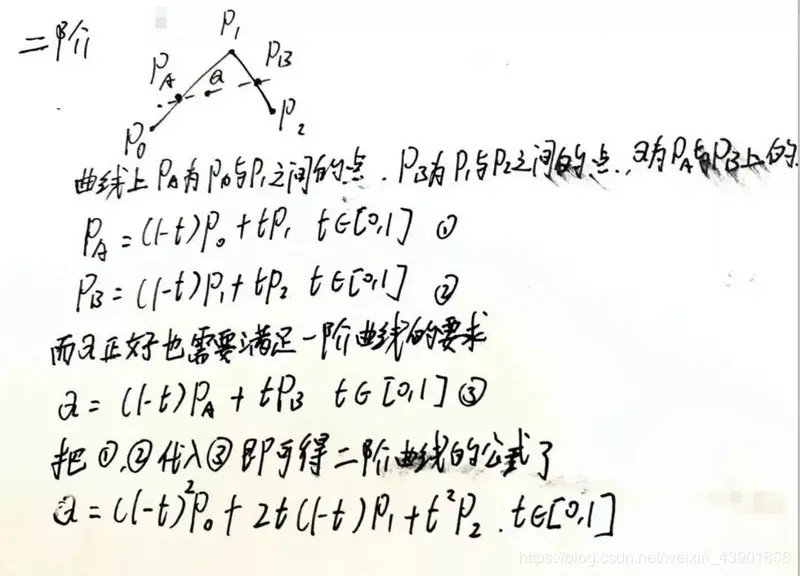 二阶
P₁
P_A
a
P_B
P₀
P₂
曲线上P_A为P₀与P₁之间的点.P_B为P₁与P₂之间的点.,a为P_A与P_B上的
P_A=(1-t)P₀+tP₁ t∈[0,1] ①
P_B=(1-t)P₁+tP₂ t∈[0,1] ②
而a正好也需要满足一阶曲线的要求
a=(1-t)P_A+tP_B t∈[0,1]③
把①,②代入③即可得二阶曲线的公式了
a=(1-t)²P₀+2t(1-t)P₁+t²P₂.t∈[0,1]
https://blog.csdn.net/weixin_43901868